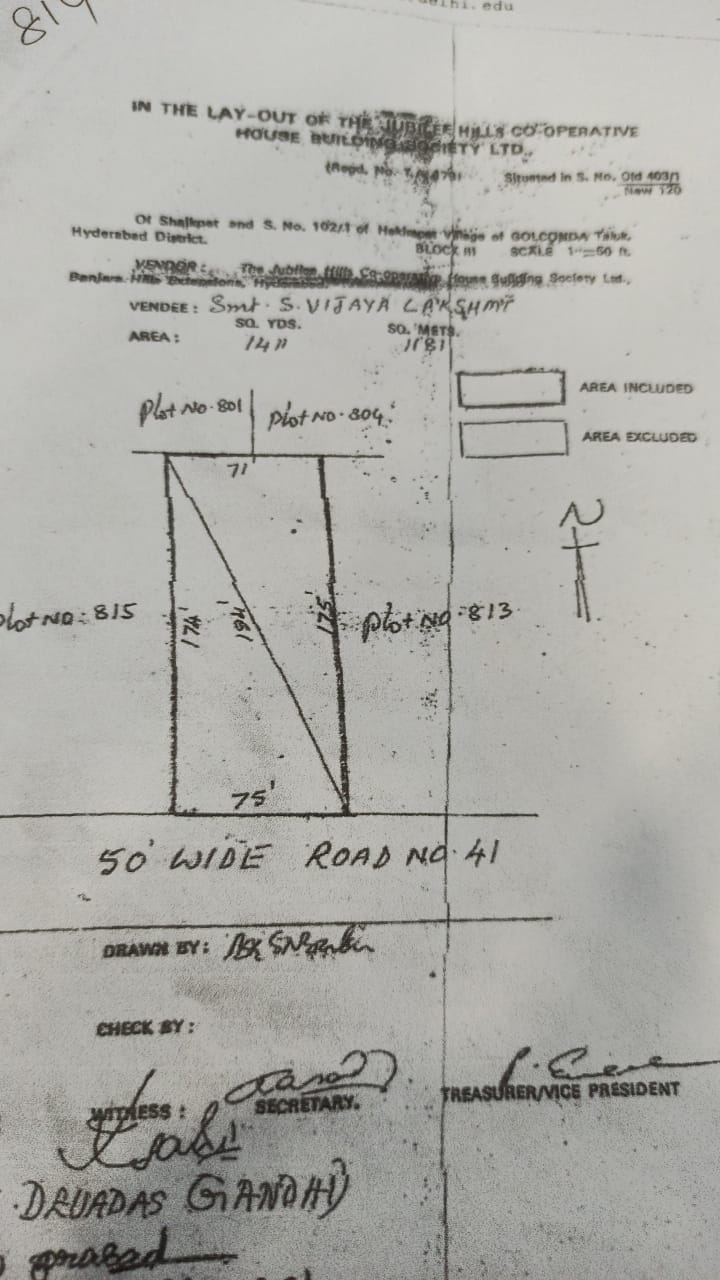 814
.edu
IN THE LAY-OUT OF THE JUBILEE HILLS CO-OPERATIVE
HOUSE BUILDING SOCIETY LTD.,
(Regd. No. Situated in S. No. Old 403/1
New 120
Of Shaikpet and S. No. 102/1 of Hakimpet Village of GOLCONDA Taluk,
Hyderabad District. BLOCK III SCALE 1"=50 ft.
VENDOR: The Jubilee Hills Co-operative House Building Society Ltd.,
Banjara Hills Extensions, Hyderabad
VENDEE: Smt. S. VIJAYA LAKSHMI
SQ. YDS. SQ. METS.
AREA: 1411 1181
AREA INCLUDED
Plot NO. 801 Plot NO. 804
AREA EXCLUDED
71'
N
Plot NO: 815 174' 194' 175' Plot NO. 813
75'
50' WIDE ROAD NO. 41
DRAWN BY:
CHECK BY:
WITNESS: SECRETARY. TREASURER/VICE PRESIDENT
GANDHI
prasad